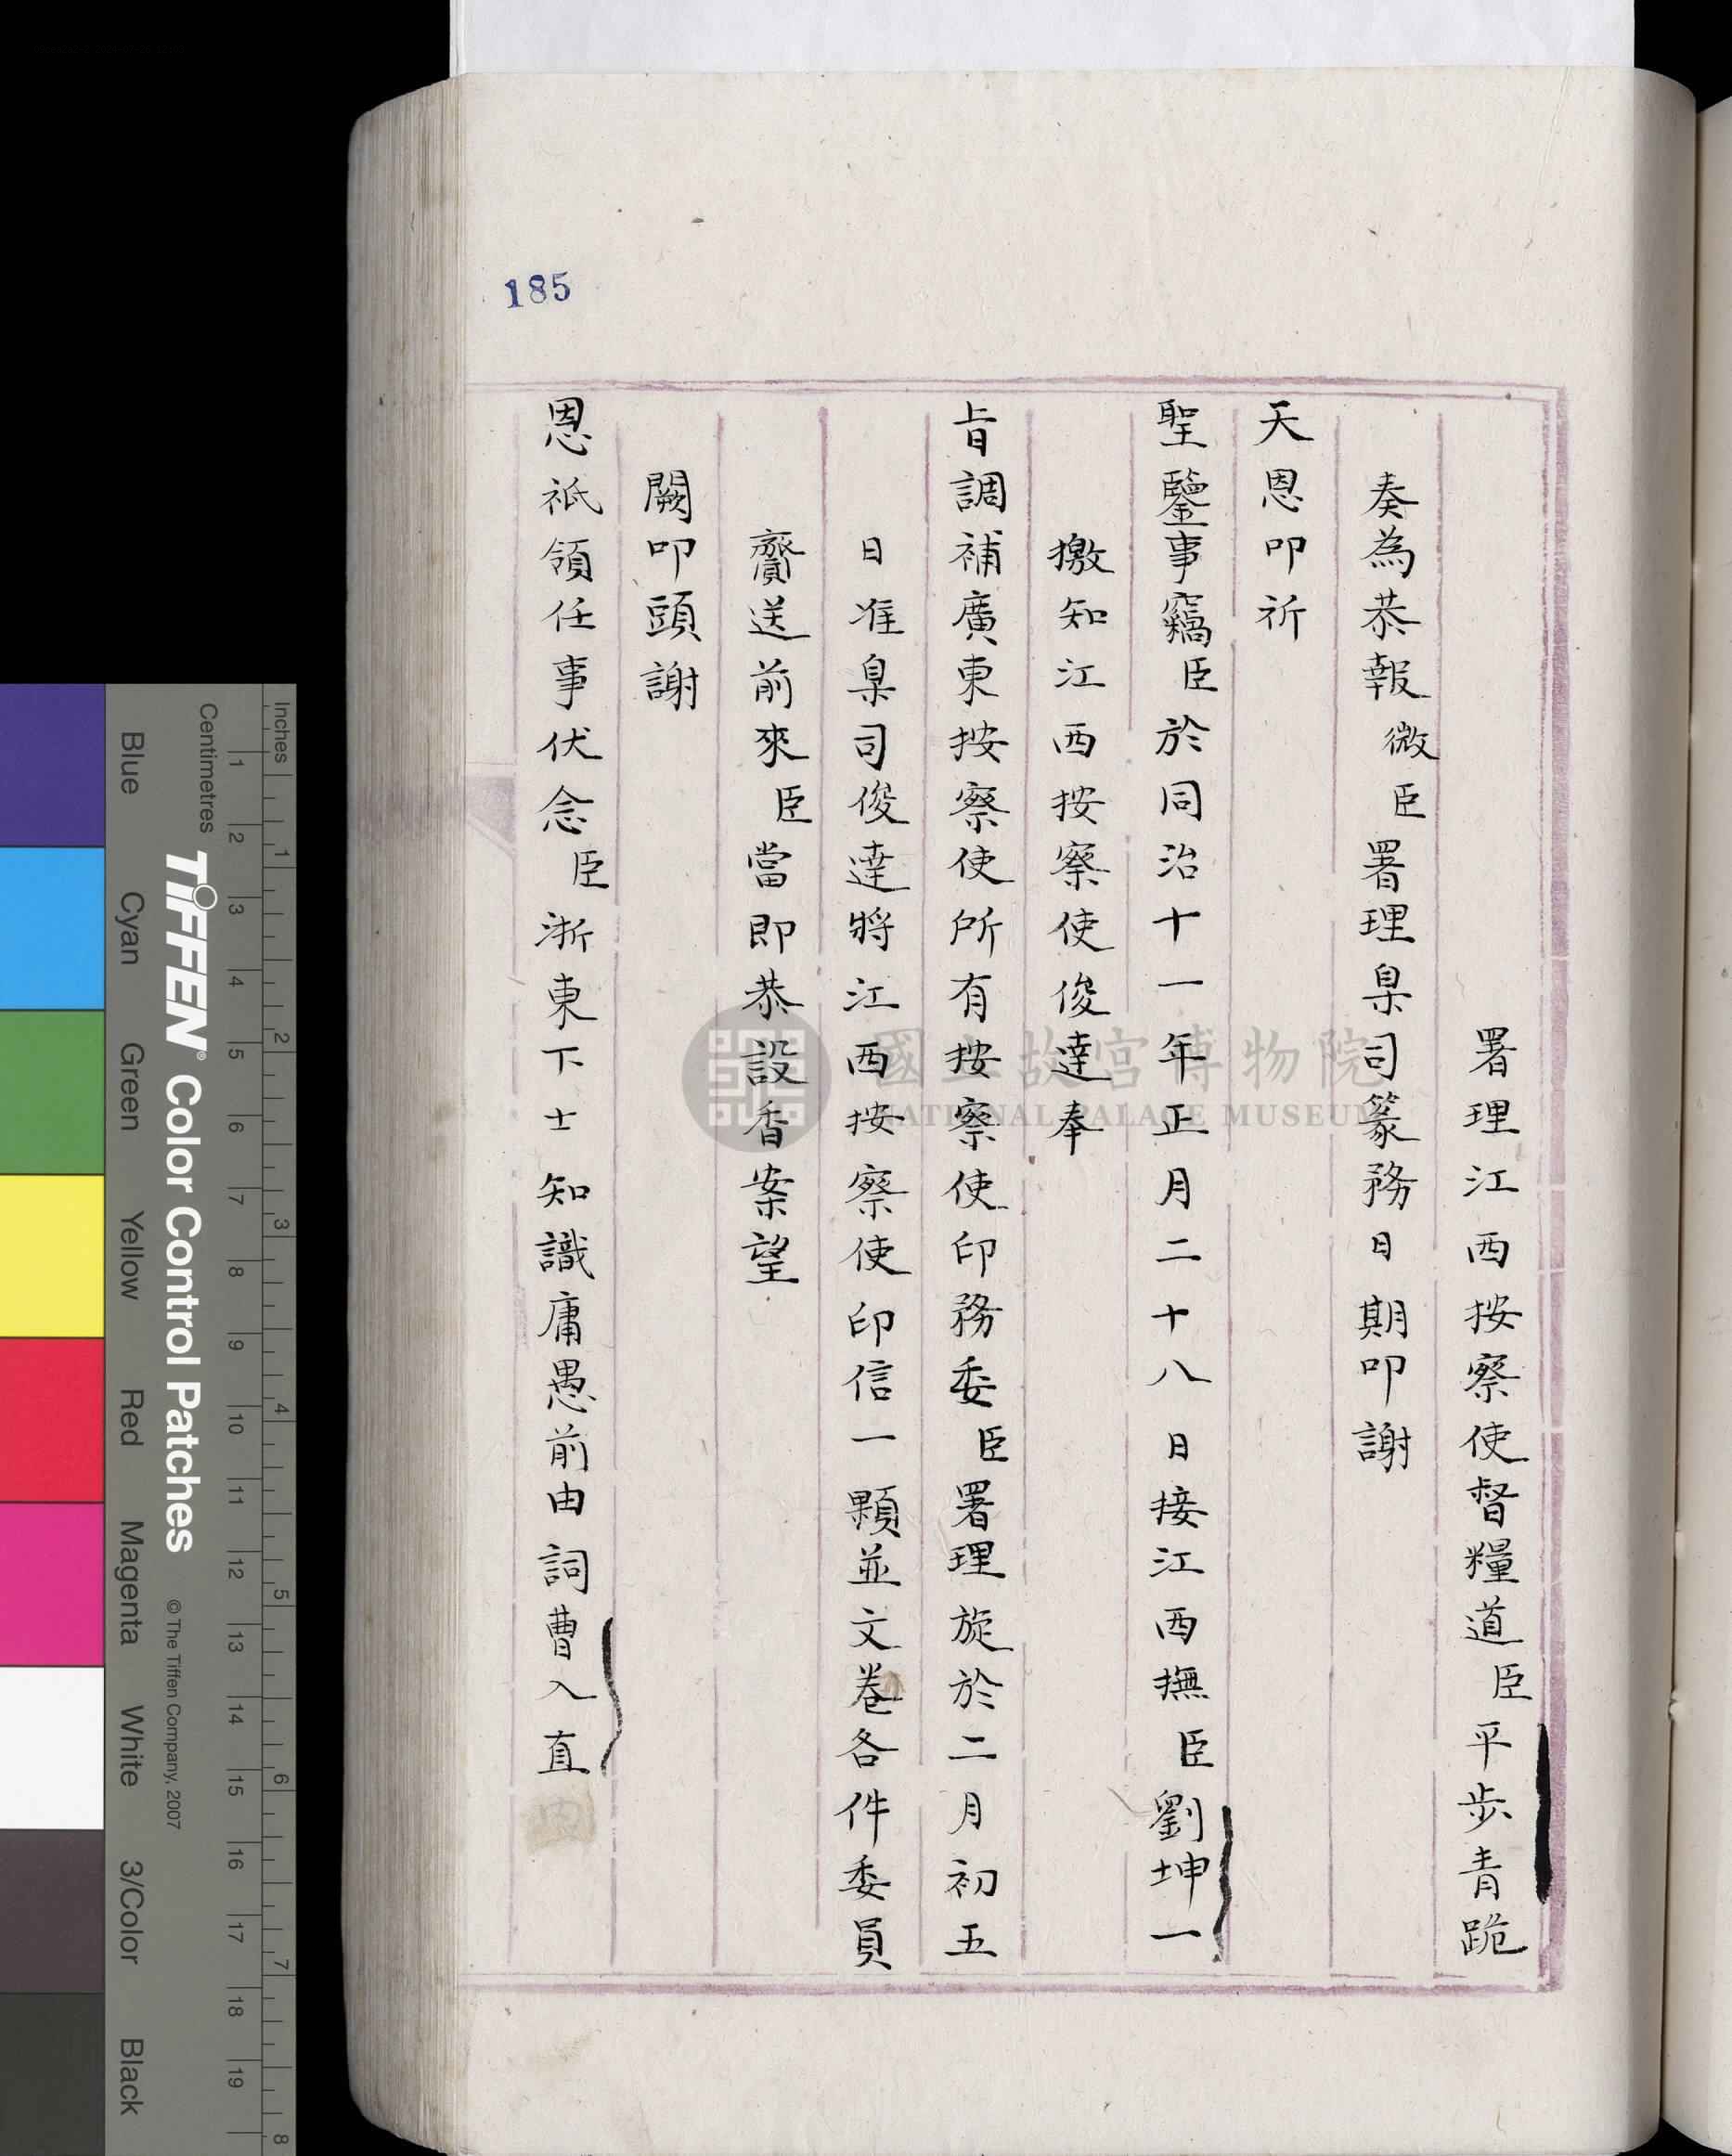 185
署理江西按察使督糧道臣平步青跪
奏為恭報微臣署理臬司篆務日期叩謝
天恩叩祈
聖鑒事竊臣於同治十一年正月二十八日接江西撫臣劉坤一
檄知江西按察使俊達奉
旨調補廣東按察使所有按察使印務委臣署理旋於二月初五
日准臬司俊達將江西按察使印信一顆並文卷各件委員
齎送前來臣當即恭設香案望
闕叩頭謝
恩祇領任事伏念臣浙東下士知識庸愚前由詞曹入直
國立故宮博物院
NATIONAL PALACE MUSEUM
Inches
1 2 3 4 5 6 7 8
Centimetres
1 2 3 4 5 6 7 8 9 10 11 12 13 14 15 16 17 18 19
TIFFEN® Color Control Patches © The Tiffen Company, 2007
Blue Cyan Green Yellow Red Magenta White 3/Color Black